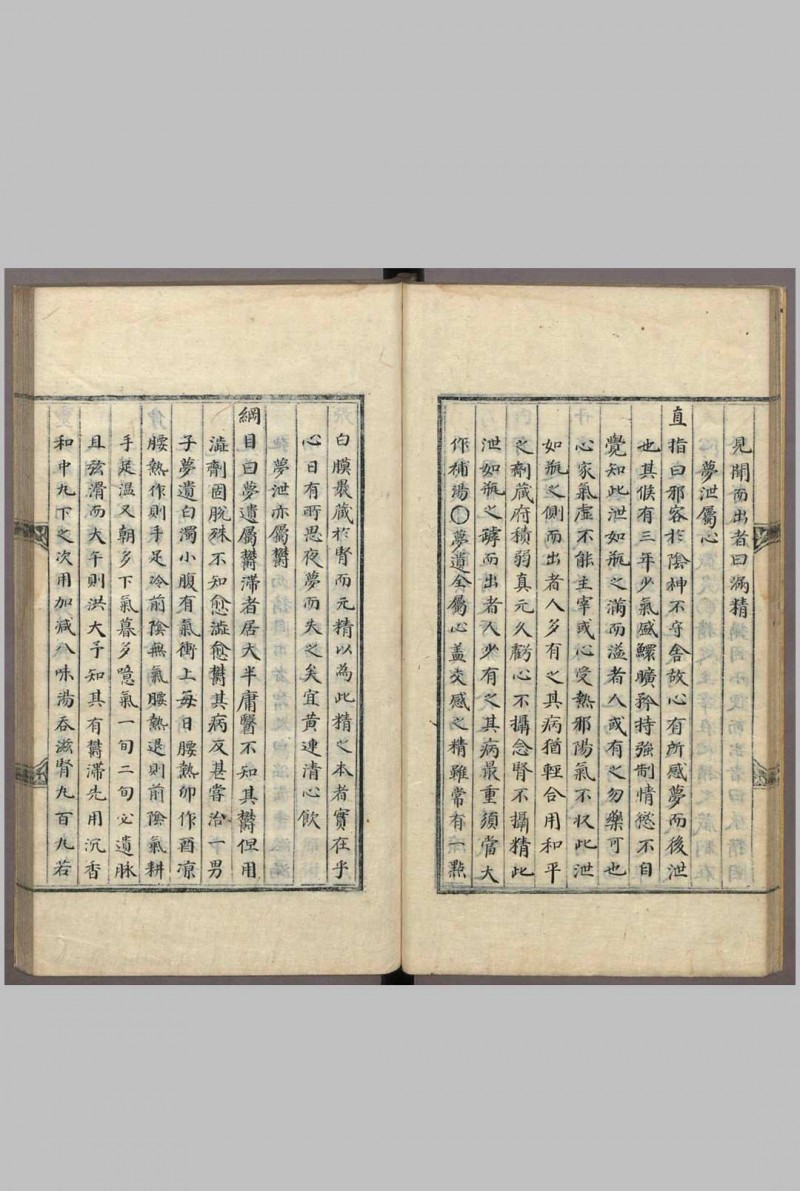 見聞而出者曰漏精
夢泄屬心
直指曰邪容於陰神不守舍故心有所感夢而後泄
也其候有三年少氣感鰥曠矜持強制情慾不自
覺知此泄如瓶之滿而溢者人或有之勿藥可也
心家氣虛不能主宰或心受熱邪陽氣不収此泄
如瓶之側而出者人多有之其病猶輕合用和平
之劑藏府積弱真元久虧心不攝念腎不攝精此
泄如瓶之罅而出者人少有之其病最重須當大
作補湯○夢遺全屬心盖交感之精雖常有一㸃
白膜裹藏於腎而元精以為此精之本者實在乎
心日有所思夜夢而失之矣宜黄連清心飲
夢泄亦屬鬱
綱目曰夢遺屬鬱滯者居大半庸醫不知其鬱但用
澁劑固脫殊不知愈澁愈鬱其病反甚甞治一男
子夢遺白濁小腹有氣衝上每日腰熱卯作酉凉
腰熱作則手足冷前陰無氣腰熱退則前陰氣耕
手足温又朝多下氣暮多噫氣一旬二旬必遺脉
且弦滑而大午則洪大予知其有鬱滯先用沉香
和中丸下之次用加减八味湯吞滋腎丸百丸若